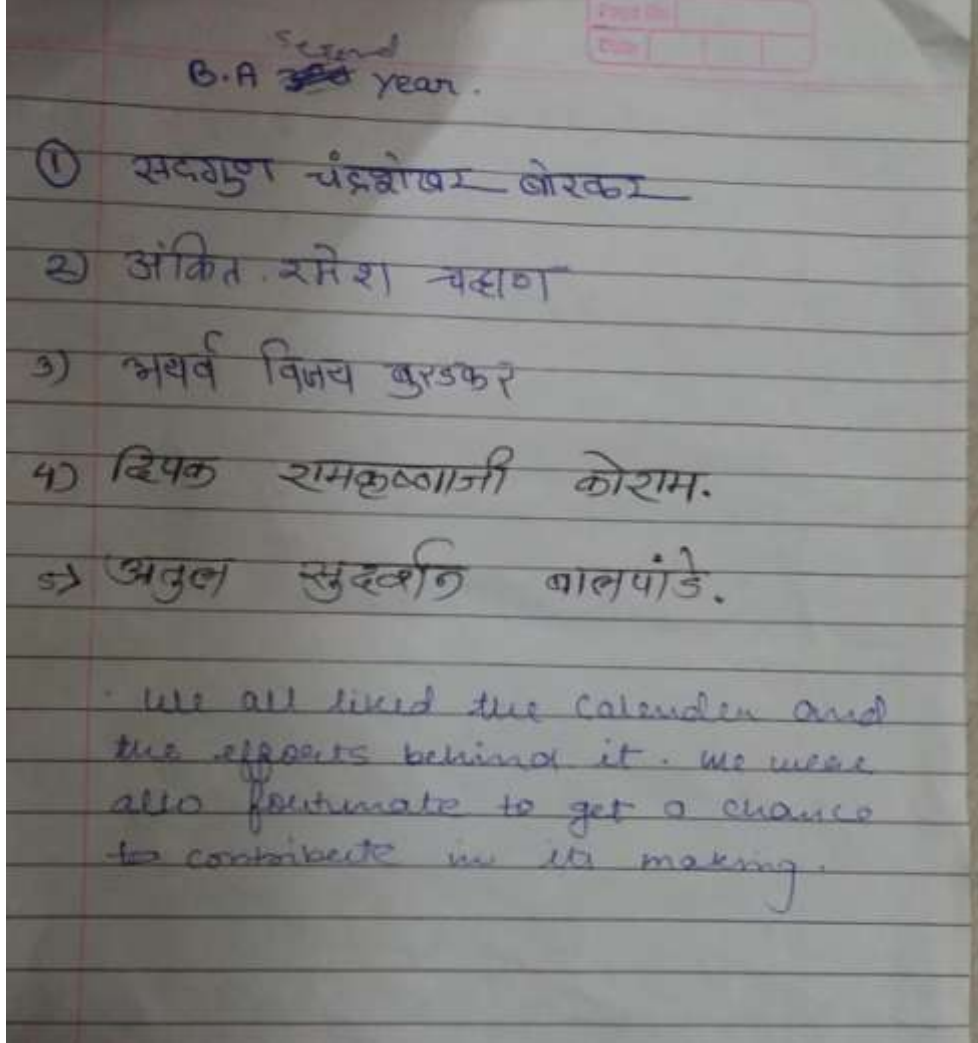 Page No.
Date
B.A Second year.
① सदगुण चंद्रशेखर बोरकर
२) अंकित रमेश चव्हाण
३) अथर्व विजय बुरडकर
4) दिपक रामकृष्णाजी कोराम.
5) अतुल सुदर्शन बालपांडे.
We all liked the Calender and
the efforts behind it. We were
also fortunate to get a chance
to contribute in its making.